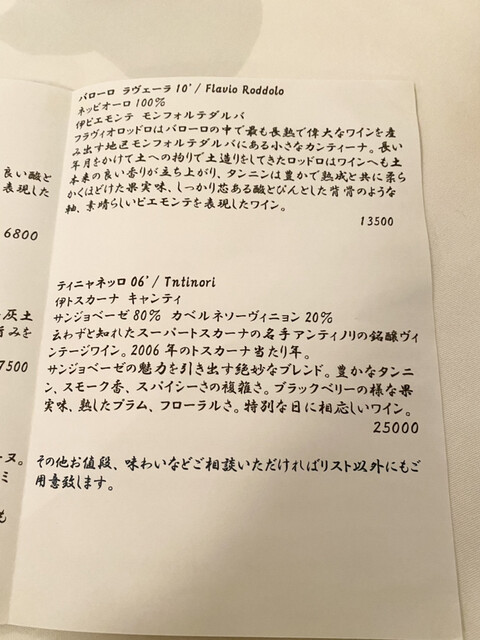 良い酸と
表現した
6800
灰土
7500
ーヌ。
ミ
も
バローロ ラヴェーラ 10'/ Flavio Roddolo
ネッビオーロ 100%
伊ピエモンテ モンフォルテダルバ
フラヴィオロッドロはバローロの中で最も長熟で偉大なワインを産
み出す地区モンフォルテダルバにある小さなカンティーナ。長い
年月をかけて土への拘りで土造りをしてきたロッドロはワインへも土
本来の良い香りが立ち上がり、タンニンは豊かで熟成と共に柔ら
かくほどけた果実味、しっかり芯ある酸とぴんとした背骨のような
軸、素晴らしいピエモンテを表現したワイン。
13500
ティニャネッロ 06'/ Tntinori
伊トスカーナ キャンティ
サンジョベーゼ 80% カベルネソーヴィニョン 20%
云わずと知れたスーパートスカーナの名手アンティノリの銘醸ヴィ
ンテージワイン。2006 年のトスカーナ当たり年。
サンジョベーゼの魅力を引き出す絶妙なブレンド。豊かなタンニ
ン、スモーク香、スパイシーさの複雑さ。ブラックベリーの様な果
実味、熟したプラム、フローラルさ。特別な日に相応しいワイン。
25000
その他お値段、味わいなどご相談いただければリスト以外にもご
用意致します。